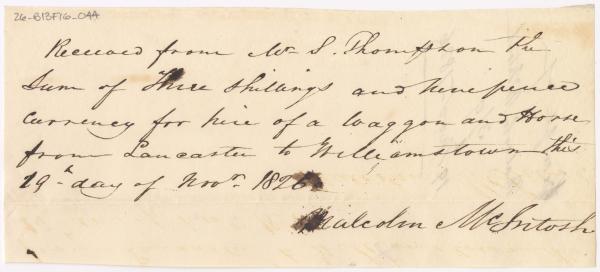 26-B13F16-04A
Received from Mr. S. Thompson the
Sum of Three Shillings and ninepence
Currency for hire of a Waggon and Horse
from Lancaster to Williamstown this
19th day of Novr. 1826
Malcolm McIntosh